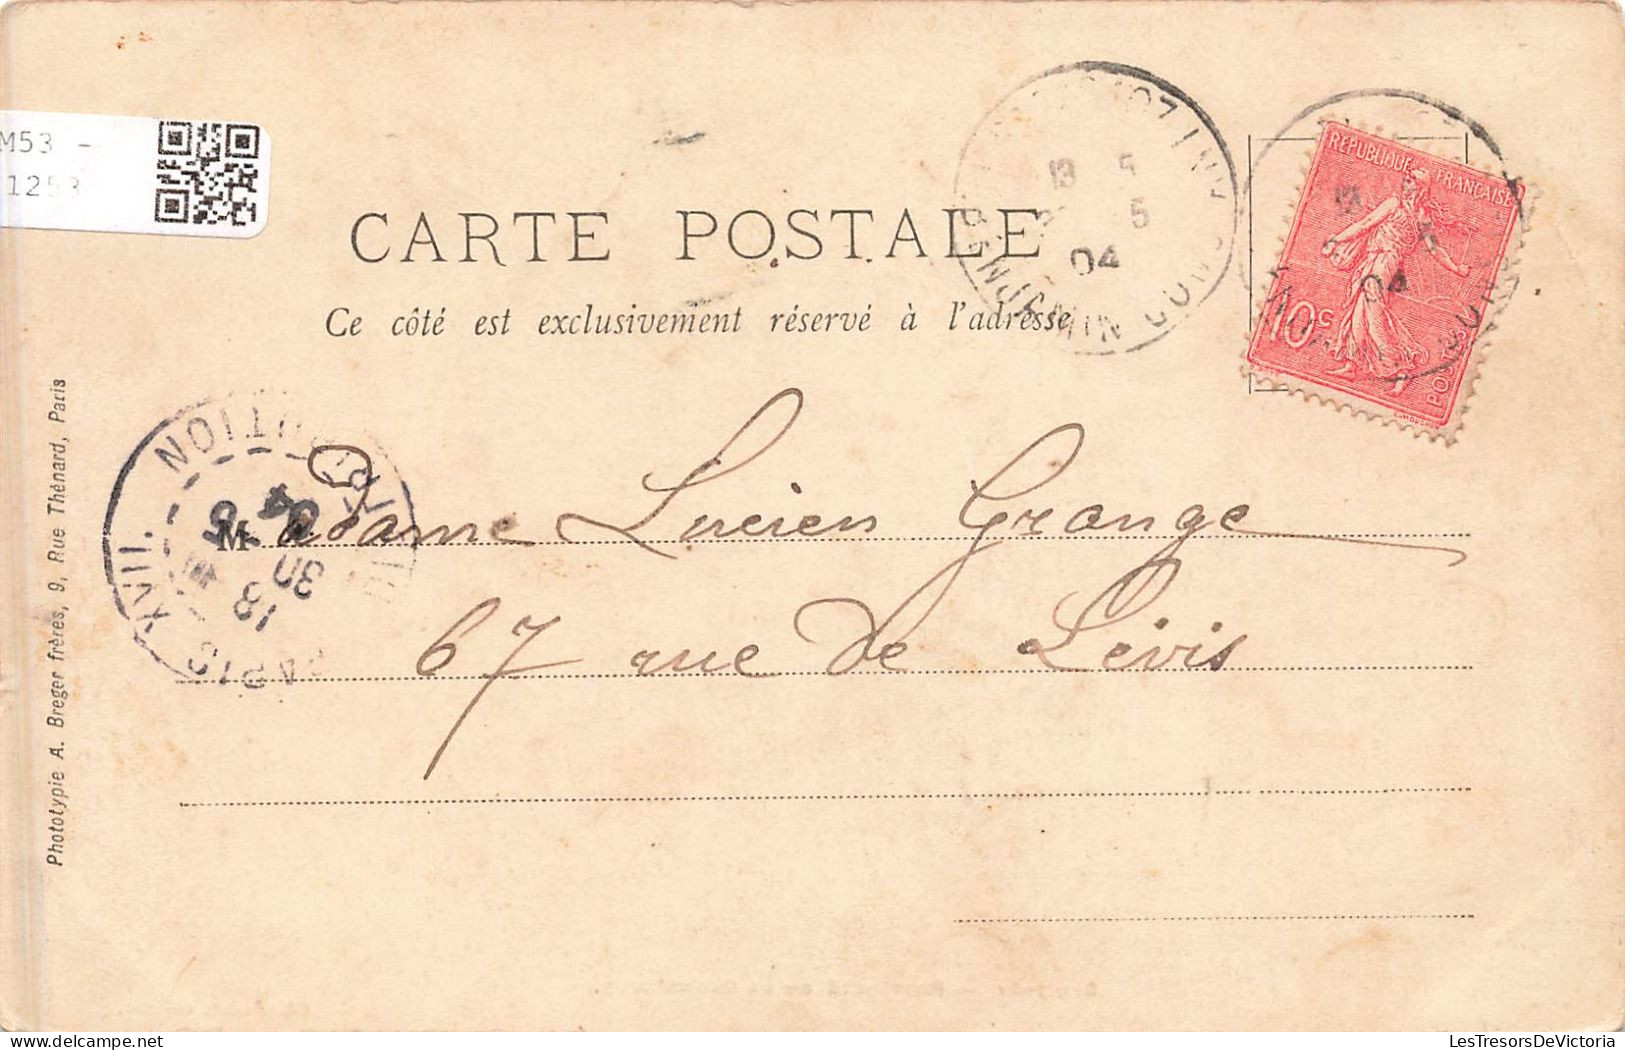 M53 -
1253
CARTE POSTALE
Ce côté est exclusivement réservé à l'adresse
RÉPUBLIQUE FRANÇAISE
10c
POSTES
13 5
5
04
04
DISTRIBUTION
PARIS XVII.
18
30
5
04
Madame Lucien Grange
67 rue de Lévis
Phototypie A. Breger frères, 9, Rue Thénard, Paris
LesTresorsDeVictoria